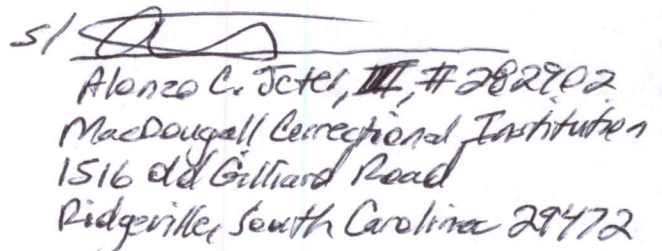 s/
Alonzo C. Jeter, III, #282902
MacDougall Correctional Institution
1516 old Gilliard Road
Ridgeville, South Carolina 29472